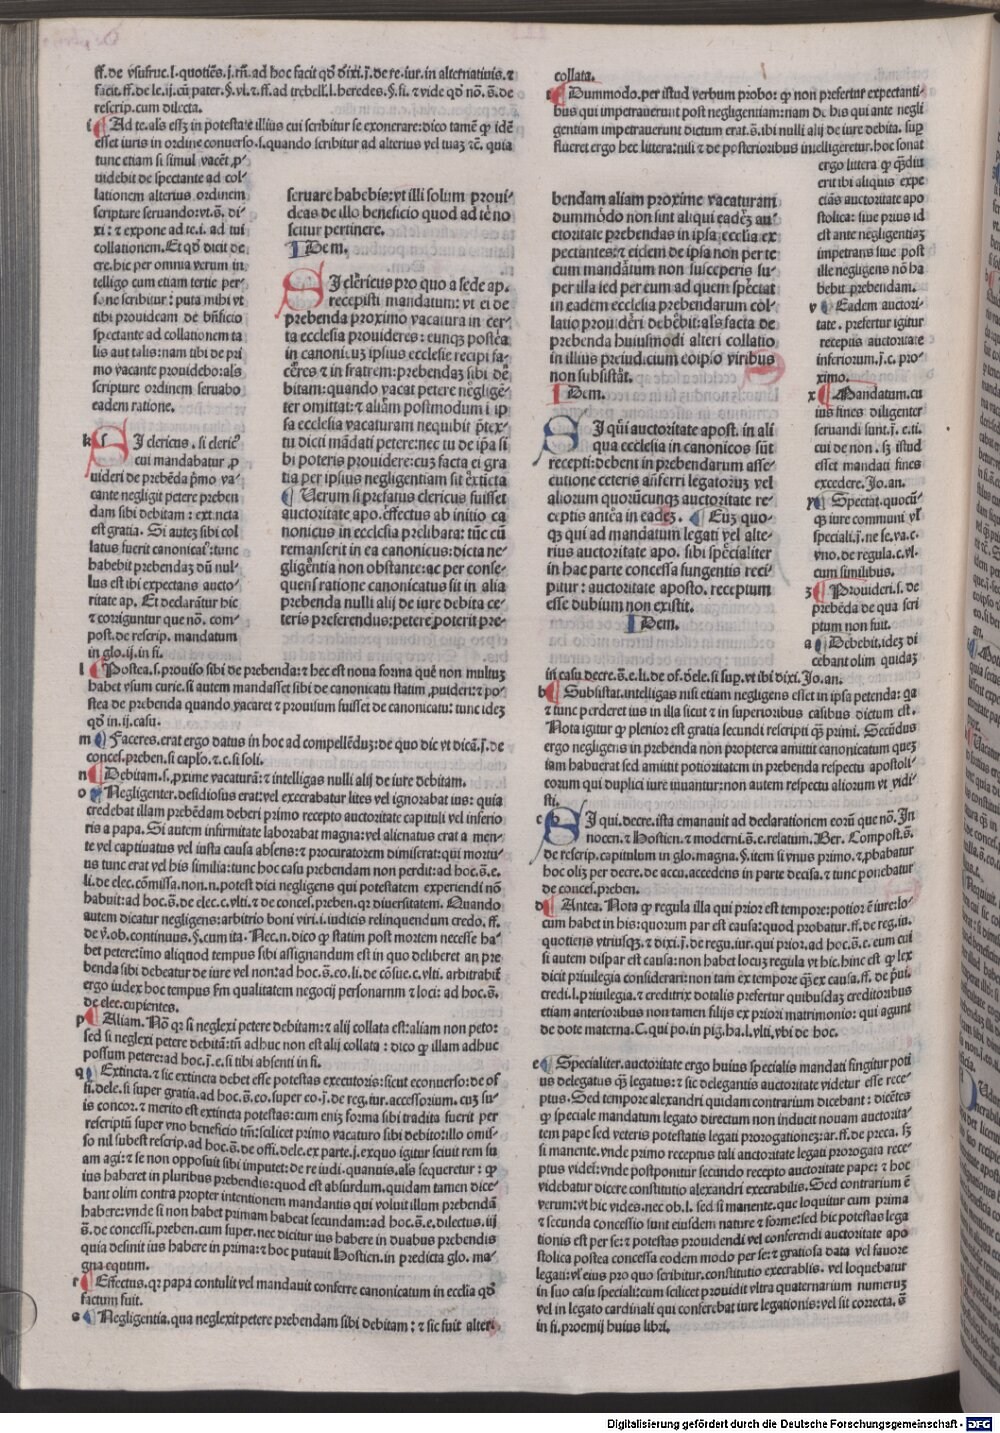 ff. de vsufruc. l. quotiēs. j. rñ. ad hoc facit qď dixi. j. de re. iur. in alternatiuis. ⁊
facit. ff. de le. ij. cū pater. §. vl. ⁊. ff. ad trebell. l. heredes. §. fi. ⁊ vide qď nō. ḡ. de
rescrip. cum dilecta.
i Ad te. als essꝫ in p̄otestate illius cui scribitur se exonerare: dico tamē ꝙ idē
esset iuris in ordine conuerso. s. quando scribitur ad alterius vel tuaꝫ ⁊c. quia
tunc etiam si simul vacēt ,p-
uidebit de spectante ad col-
lationem alterius ordinem
scripture seruando: vt. ḡ. di-
xi: ⁊ expone ad te. i. ad tui
collationem. Et qď dicit de-
cre. hic per omnia verum in-
telligo cum etiam tertie per-
sone scribitur: puta mihi vt
tibi prouideam de bn̄ficio
spectante ad collationem ta-
lis aut talis: nam tibi de pri-
mo vacante prouidebo: als
scripture ordinem seruabo
eadem ratione.
k Si clericus. si cleric̄
cui mandabatur ,p
uideri de prebēda p̄mo va-
cante negligit petere preben
dam sibi debitam: extincta
est gratia. Si autez sibi col
latus fuerit canonicat̄: tunc
habebit prebendaꝫ dū nul-
lus est ibi expectans aucto-
ritate ap. Et declarātur hic
⁊ corriguntur que nō. com-
post. de rescrip. mandatum
in glo. ij. in fi.
l Postea. s. prouiso sibi de prebenda: ⁊ hec est noua forma quā non multuꝫ
habet vsum curie. si autem mandasset sibi de canonicatu statim ,puideri: ⁊ po-
stea de prebenda quando vacaret ⁊ prouisum fuisset de canonicatu: tunc ideꝫ
qď in. ij. casu.
m Faceres. erat ergo datus in hoc ad compellēduꝫ: de quo dic vt dicā. j. de
conces. preben. si caplo. ⁊. c. si soli.
n Debitam. s. ,pxime vacaturā: ⁊ intelligas nulli alij de iure debitam.
o Negligenter. desidiosus erat: vel execrabatur lites vel ignorabat ius: quia
credebat illam prebēdam deberi primo recepto auctoritate capituli vel inferio
ris a papa. Si autem infirmitate laborabat magna: vel alienatus erat a men-
te vel captiuatus vel iusta causa absens: ⁊ procuratorem dimiserat: qui mortu-
us tunc erat vel his similia: tunc hoc casu prebendam non perdit: ad hoc. ḡ. e.
li. de elec. cōmissa. non. n. potest dici negligens qui potestatem experiendi nō
habuit: ad hoc. ḡ. de elec. c. vlti. ⁊ de conces. preben. qꝛ diuersitatem. Quando
autem dicatur negligens: arbitrio boni viri. i. iudicis relinquendum credo. ff.
de v̄. ob. continuus. §. cum ita. Nec. n. dico ꝙ statim post mortem necesse ha-
bet petere: imo aliquod tempus sibi assignandum est in quo deliberet an pre
benda sibi debeatur de iure vel non: ad hoc. ḡ. eo. li. de cōsue. c. vlti. arbitrabit̄
ergo iudex hoc tempus s̄m qualitatem negocij personarum ⁊ loci: ad hoc. ḡ.
de elec. cupientes.
p Aliam. Nō qꝛ si neglexi petere debitam: ⁊ alij collata est: aliam non peto:
sed si neglexi petere debitā: tn̄ adhuc non est alij collata: dico ꝙ illam adhuc
possum petere: ad hoc. j. e. si tibi absenti in fi.
q Extincta. ⁊ sic extincta debet esse potestas executoris: sicut econuerso: de of
fi. dele. si super gratia. ad hoc. ḡ. eo. super eo. j. de reg. iur. accessorium. cuꝫ su-
is concor. ⁊ merito est extincta potestas: cum eniꝫ forma sibi tradita fuerit per
rescriptū super vno beneficio tm̄: scilicet primo vacaturo sibi debito: illo omis-
so nil subest rescrip. ad hoc. ḡ. de offi. dele. ex parte. j. exquo igitur sciuit rem su
am agi: ⁊ se non opposuit sibi imputet: de re iudi. quanuis. als sequeretur: ꝙ
ius haberet in pluribus prebendis: quod est absurdum. quidam tamen dice-
bant olim contra propter intentionem mandantis qui voluit illum prebendā
habere: vnde si non habet primam habeat secundam: ad hoc. ḡ. e. dilectus. iij
ḡ. de concessi. preben. cum super. nec dicitur ius habere in duabus prebendis
quia desinit ius habere in prima: ⁊ hoc putauit Hostien. in predicta glo. ma-
gna equum.
r Effectus. qꝛ papa contulit vel mandauit conferre canonicatum in ecclia qď
factum fuit.
s Negligentia. qua neglexit petere prebendam sibi debitam: ⁊ sic fuit alteri
seruare habebis: vt illi solum proui-
deas de illo beneficio quod ad te no
scitur pertinere.
Idem.
Si clericus pro quo a sede ap.
recepisti mandatum: vt ei de
prebenda proximo vacatura in cer-
ta ecclesia prouideres: eunqꝫ postea
in canonicuꝫ ipsius ecclesie recipi fa-
ceres ⁊ in fratrem: prebendaꝫ sibi de-
bitam: quando vacat petere neglige-
ter omittat: ⁊ aliam postmodum i ip
sa ecclesia vacaturam nequibit p̄tex-
tu dicti mādati petere: nec tu de ip̄a si
bi poteris prouidere: cuꝫ facta ei gra
tia per ipsius negligentiam sit extincta
Verum si prefatus clericus fuisset
auctoritate apo. effectus ab initio ca
nonicus in ecclesia prelibata: tūc cū
remanserit in ea canonicus: dicta ne-
gligentia non obstante: ac per conse-
quens ratione canonicatus sit in alia
prebenda nulli alij de iure debita ce-
teris preferendus: petere poterit pre-
collata.
t Dummodo. per istud verbum probo: ꝙ non prefertur expectanti-
bus qui impetrauerunt post negligentiam: nam de his qui ante negli
gentiam impetrauerunt dictum erat. ḡ. ibi nulli alij de iure debita. sup
flueret ergo hec littera: nisi ⁊ de posterioribus intelligeretur. hoc sonat
ergo littera ꝙ qdiu
erit ibi aliquis expe
ctās auctoritate apo
stolica: siue prius id
est ante negligentiaꝫ
impetrans siue post
ille negligens nō ha
bebit prebendam.
v Eadem auctori-
tate. prefertur igitur
receptis auctoritate
inferiorum. j. c. pro-
ximo.
x Mandatum. cu
ius fines diligenter
seruandi sunt. j. e. ti.
cui de non. sꝫ istud
esset mandati fines
excedere. Jo. an.
y Spectat. quocū-
qꝫ iure communi vl
speciali. j. ne se. va. c.
vno. de regula. c. vl.
cum similibus.
z Prouideri. s. de
prebēda de qua scri
ptum non fuit.
a Debebit. ideꝫ di
cebant olim quidaꝫ
bendam aliam proxime vacaturam
dummodo non sint aliqui eadeꝫ au-
ctoritate prebendas in ipsa ecclia ex
pectantes: ⁊ eidem de ipsa non per te
cum mandatum non susceperis su-
per illa sed per eum ad quem spectat
in eadem ecclesia prebendarum col-
latio prouideri debebit: als facta de
prebenda huiusmodi alteri collatio
in illius preiudicium eoipso viribus
non subsistat.
Idem.
Si qui auctoritate apost. in ali
qua ecclesia in canonicos sūt
recepti: debent in prebendarum asse-
cutione ceteris anferri legatoruꝫ vel
aliorum quorūcunqꝫ auctoritate re-
ceptis antea in eadeꝫ. Euꝫ quo-
qꝫ qui ad mandatum legati vel alte-
rius auctoritate apo. sibi specialiter
in hac parte concessa fungentis reci-
pitur: auctoritate aposto. receptum
esse dubium non existit.
Idem.
in casu decre. ḡ. e. li. de of. dele. si sup. vt ibi dixi. Jo. an.
b Subsistat. intelligas nisi etiam negligens esset in ipsa petenda: qꝛ
⁊ tunc perderet ius in illa sicut ⁊ in superioribus casibus dictum est.
Nota igitur ꝙ plenior est gratia secundi rescripti qꝫ primi. Secūdus
ergo negligens in prebenda non propterea amittit canonicatum queꝫ
iam habuerat sed amittit potioritatem in prebenda respectu apostoli-
corum qui duplici iure iuuantur: non autem respectu aliorum vt vidi-
sti.
c Si qui. decre. ista emanauit ad declarationem eorū que nō. In
nocen. ⁊ Hostien. ⁊ moderni. ḡ. e. relatum. Ber. Compost. ḡ.
de rescrip. capitulum in glo. magna. §. item si vnus primo. ⁊ ,pbabatur
hoc olīꝫ per decre. de accu. accedens in parte decisa. ⁊ tunc ponebatur
de conces. preben.
d Antea. Nota ꝙ regula illa qui prior est tempore: potior ē iure: lo-
cum habet in his: quorum par est causa: quod probatur. ff. de reg. iu.
quotiens vtriusqꝫ. ⁊ dixi. j. de regu. iur. qui prior. ad hoc. ḡ. e. eum cui
si autem dispar est causa: non habet locuꝫ regula vt hic. hinc est ꝙ lex
dicit priuilegia considerari: non tam ex tempore qꝫ ex causa. ff. de p̄ui.
credi. l. priuilegia. ⁊ creditrix dotalis prefertur quibusdaꝫ creditoribus
etiam anterioribus non tamen filijs ex priori matrimonio: qui agunt
de dote materna. C. qui po. in pig. ha. l. vlti. vbi de hoc.
e Specialiter. auctoritate ergo huius specialis mandati fingitur poti
us delegatus qꝫ legatus: ⁊ sic delegantis auctoritate videtur esse rece-
ptus. Sed tempore alexandri quidam contrarium dicebant: dicētes
ꝙ speciale mandatum legato directum non inducit nouam auctorita-
tem pape sed veteris potestatis legati prorogationeꝫ: ar. ff. de preca. sꝫ
si manente. vnde primo receptus tali auctoritate legati prorogata rece-
ptus videt̄: vnde postponitur secundo recepto auctoritate pape: ⁊ hoc
videbatur dicere constitutio alexandri execrabilis. Sed contrarium ē
verum: vt hic vides. nec ob. l. sed si manente. que loquitur cum prima
⁊ secunda concessio sunt eiusdem nature ⁊ forme: sed hic potestas lega
tionis est per se: ⁊ potestas prouidendi vel conferendi auctoritate apo
stolica postea concessa eodem modo per se: ⁊ gratiosa data vel fauore
legati: vl eius pro quo scribitur. constitutio execrabilis. vel loquebatur
in suo casu speciali: cum scilicet prouidit vltra quaternarium numeruꝫ
vel in legato cardinali qui conferebat iure legationis: vel sit correcta. ḡ
in fi. proemij huius libri.
Digitalisierung gefördert durch die Deutsche Forschungsgemeinschaft - DFG